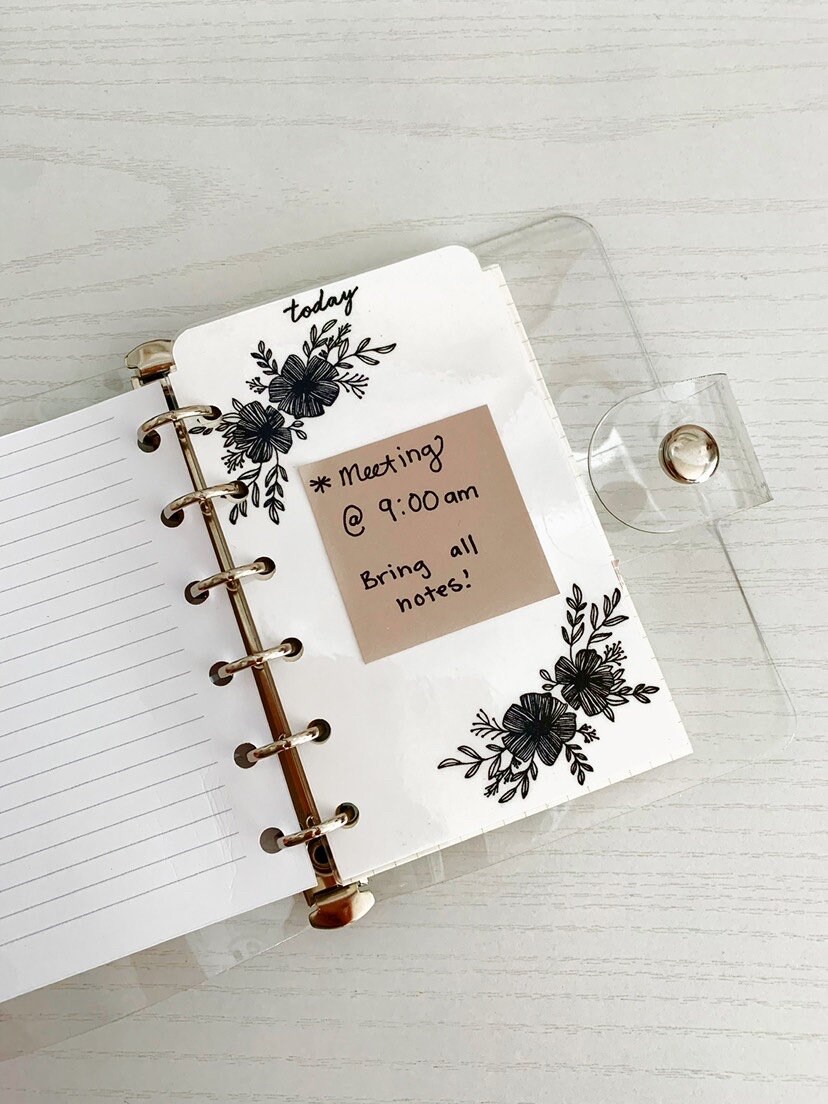 today
* Meeting
@ 9:00am
Bring all
notes!